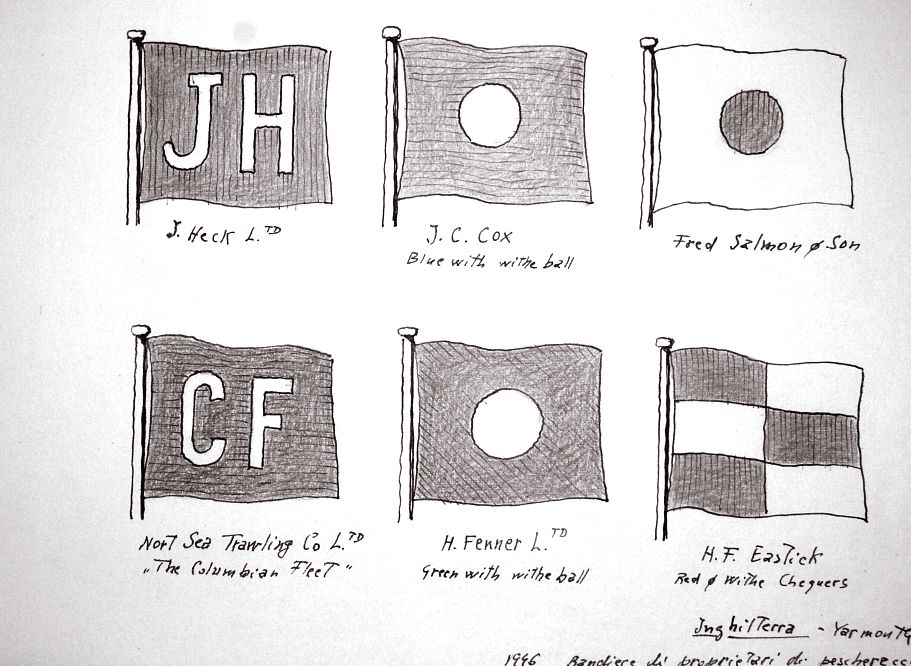 JH
J. Heck L.TD
J. C. Cox
Blue with withe ball
Fred Salmon & Son
CF
Nort Sea Trawling Co L.TD
"The Columbian Fleet"
H. Fenner L.TD
Green with withe ball
H.F. Eastick
Red & withe Chequers
Inghilterra - Yarmout
1946 Bandiere di proprietari di pescherecc